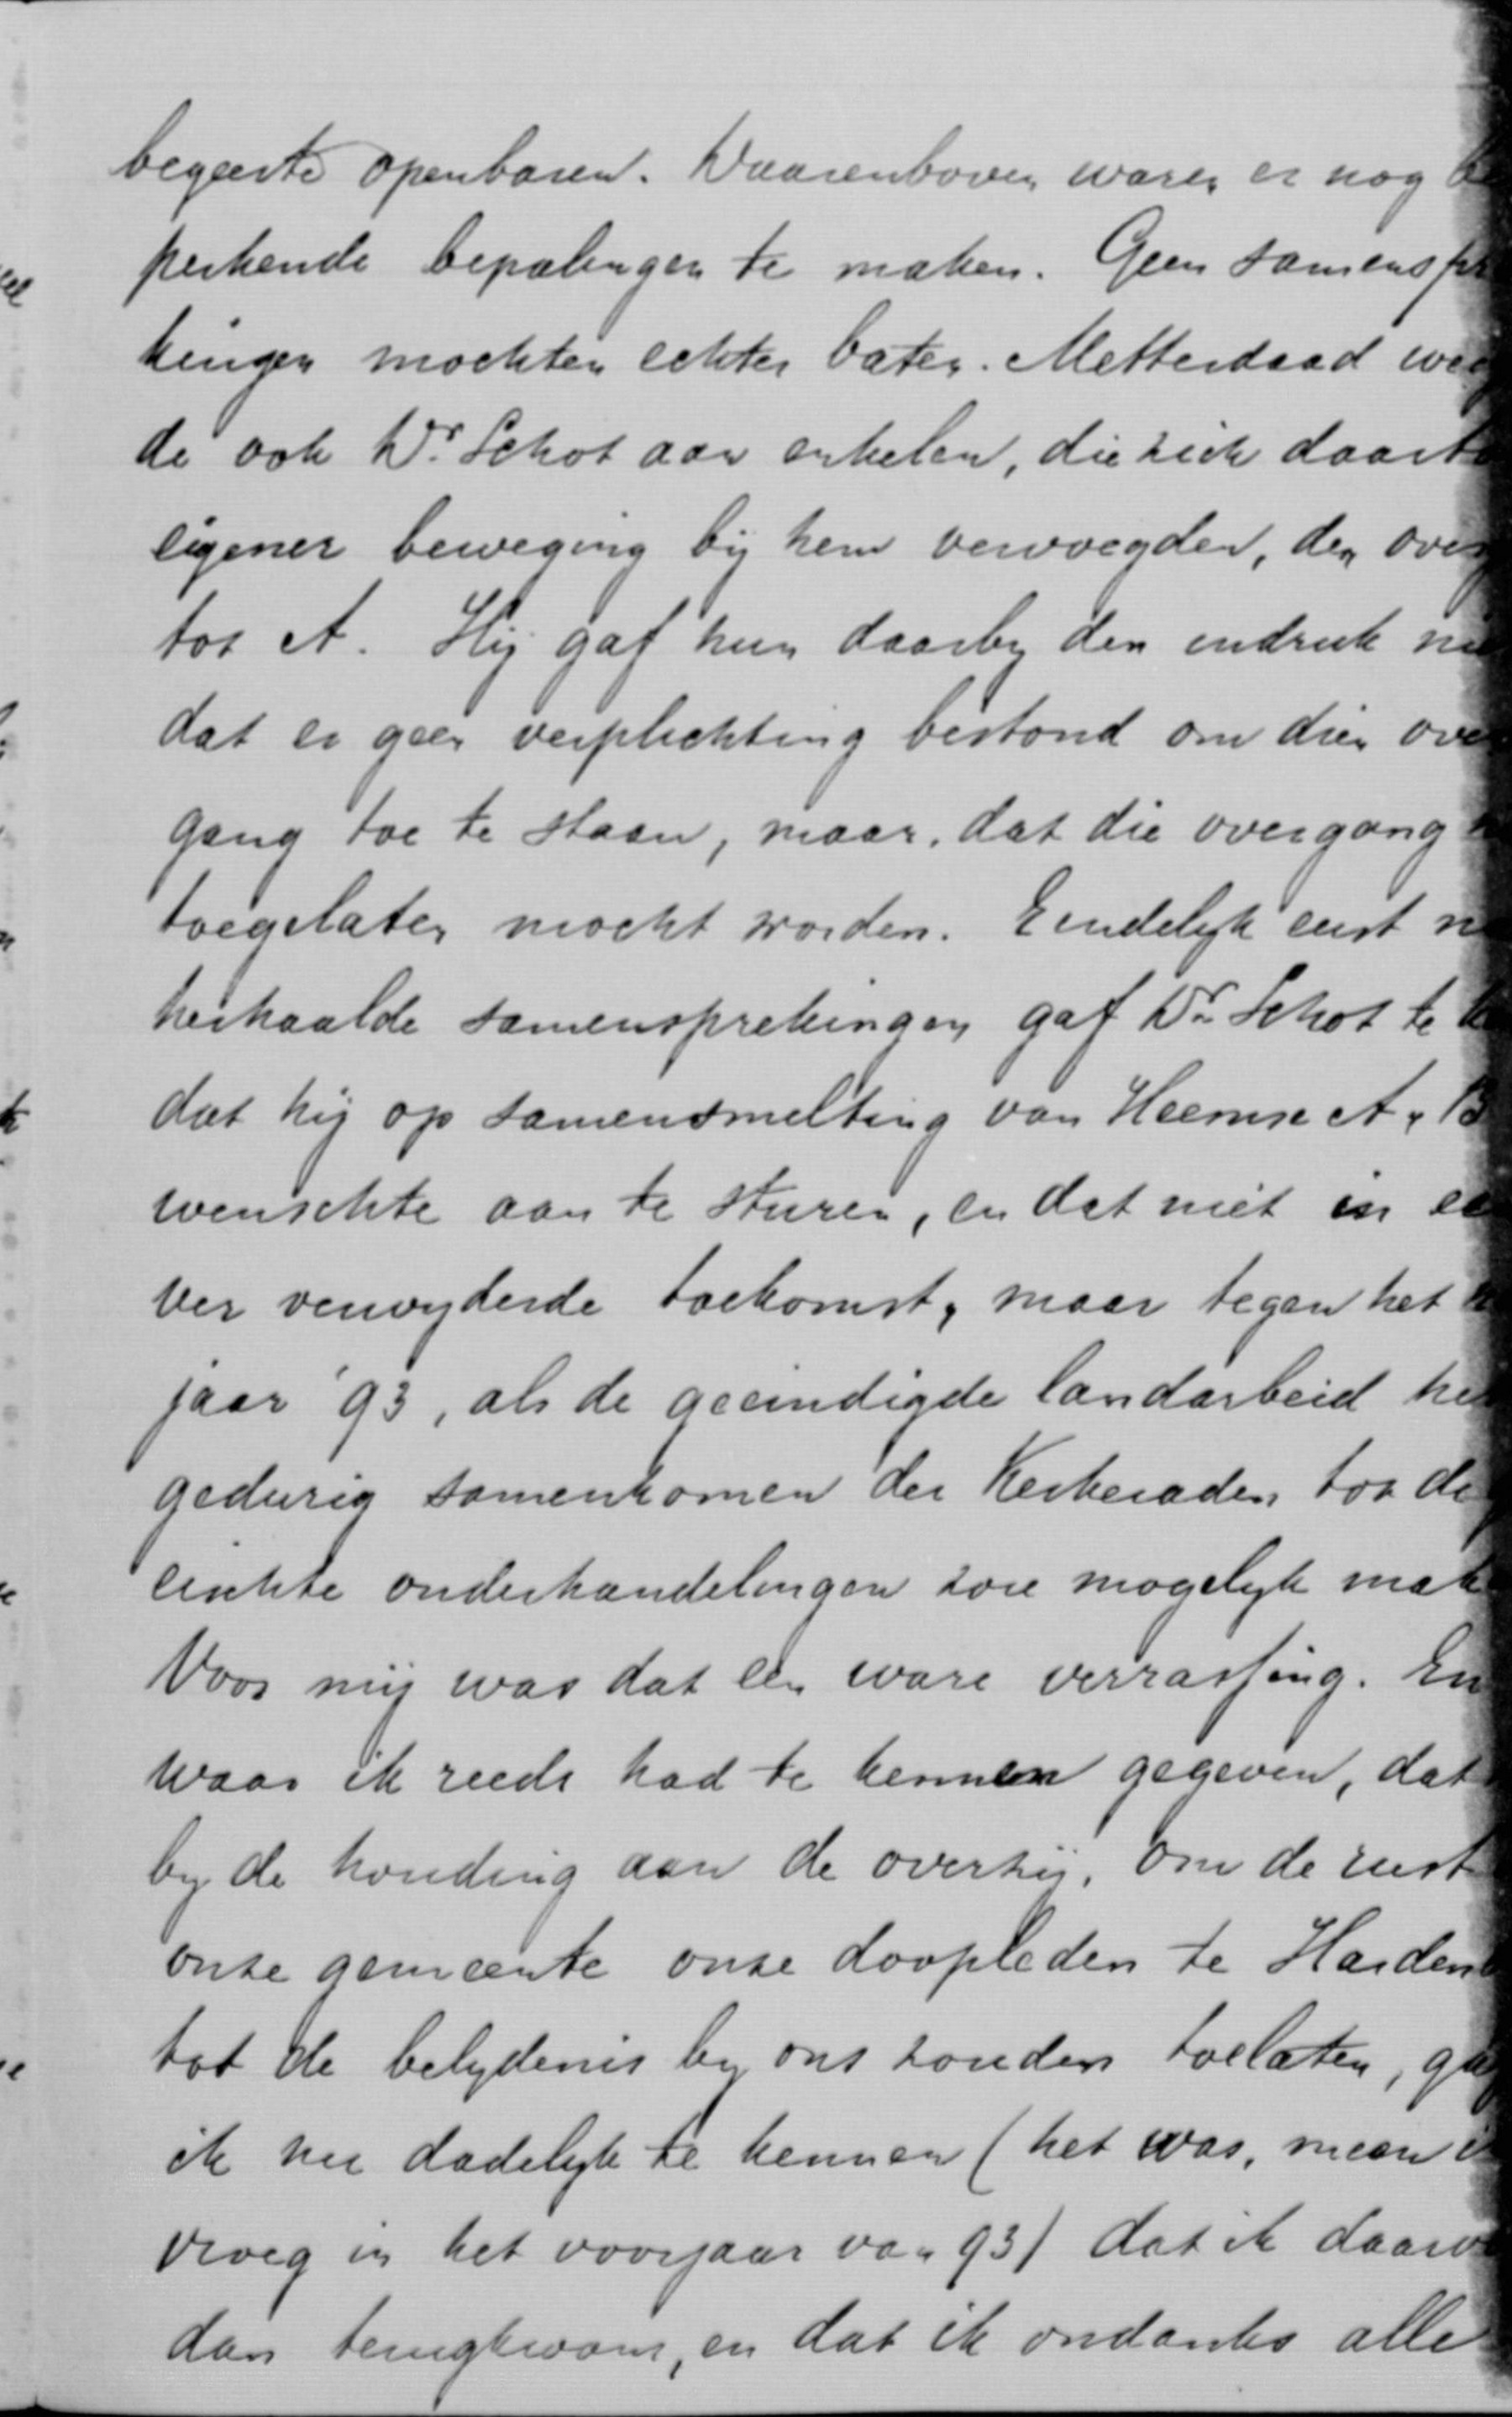 begeerte openbaren. Daarenboven waren er nog be
perkende bepalingen te maken. Geen samenspre
kingen mochten echter baten. Metterdaad wei
de ook Ds. Schot aan enkelen, die zich daarto
eigener beweging bij hem vervoegden, den over
tot A. Hij gaf hun daarby den indruk nie
dat er geen verplichting bestond om dien over
gang toe te staan, maar, dat die overgang
toegelaten mocht worden. Eindelyk eerst na
herhaalde samensprekingen gaf Ds. Schot te
dat hij op samensmelting van Heemse A. B
wenschte aan te sturen, en dat niet in ee
ver verwyderde toekomst, maar tegen het
jaar '93, als de geeindigde landarbeid het
gedurig samenkomen der Kerkeraden tot de
eischte onderhandelingen zou mogelyk mak
Voor mij was dat een ware verrassing. En
waar ik reeds had te kennen gegeven, dat
by de houding aan de overzij, om de rust
onze gemeente onze doopleden te Hardenb
tot de belydenis by ons zouden toelaten, gaf
ik nu dadelyk te kennen (het was, meen ik
vroeg in het voorjaar van 93) dat ik daarv
dan terugkwam, en dat ik ondanks alle